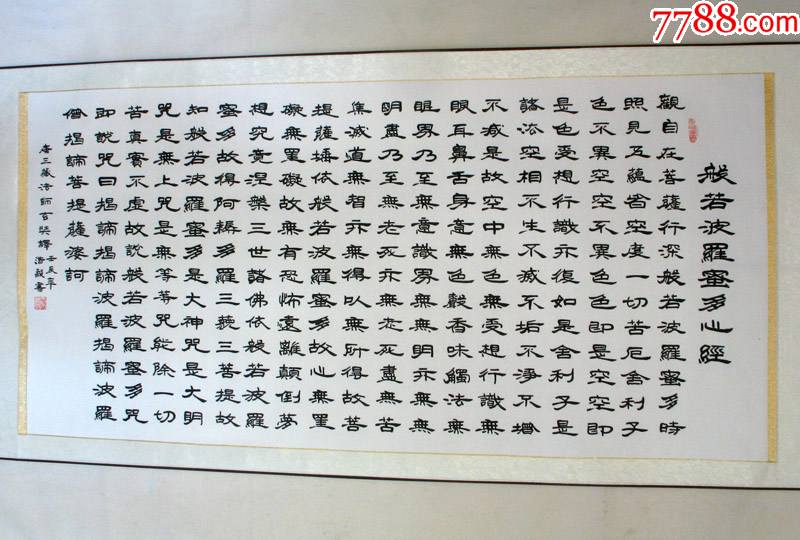 7788.com
般若波羅蜜多心經
觀自在菩薩行深般若波羅蜜多時
照見五蘊皆空度一切苦厄舍利子
色不異空空不異色色即是空空即
是色受想行識亦復如是舍利子是
諸法空相不生不滅不垢不淨不增
不減是故空中無色無受想行識無
眼耳鼻舌身意無色聲香味觸法無
眼界乃至無意識界無無明亦無無
明盡乃至無老死亦無老死盡無苦
集滅道無智亦無得以無所得故菩
提薩埵依般若波羅蜜多故心無罣
礙無罣礙故無有恐怖遠離顛倒夢
想究竟涅槃三世諸佛依般若波羅
蜜多故得阿耨多羅三藐三菩提故
知般若波羅蜜多是大神咒是大明
咒是無上咒是無等等咒能除一切
苦真實不虛故說般若波羅蜜多咒
即說咒曰揭諦揭諦波羅揭諦波羅
僧揭諦菩提薩婆訶
唐三藏法師玄奘譯 壬辰年
書